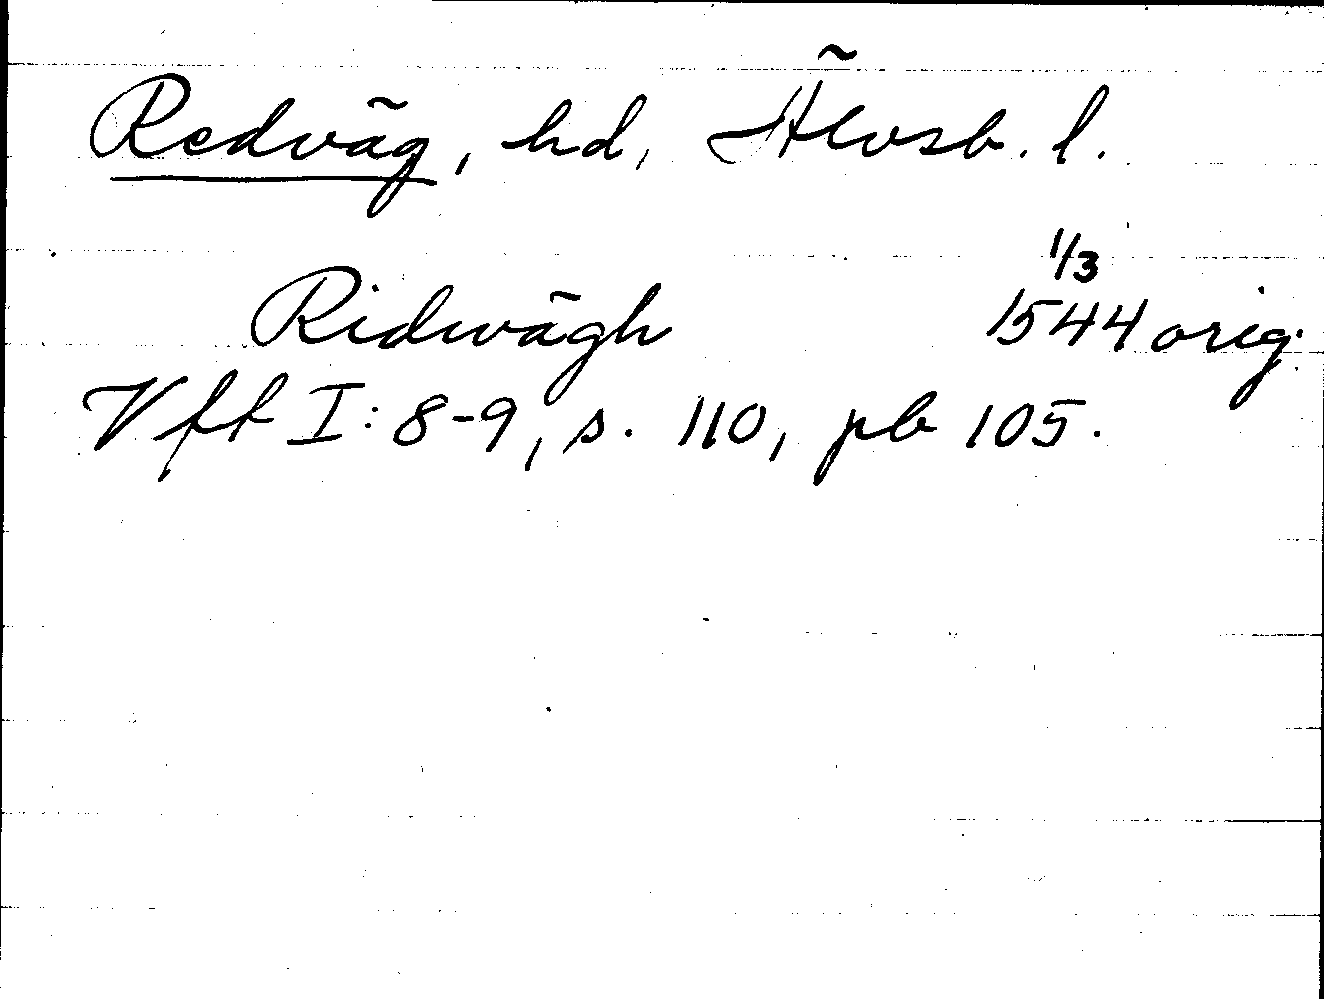 Redväg, hd, Älvsb. l.
1/3
Ridwägh 1544 orig.
Vft I: 8-9, s. 110, pb 105.